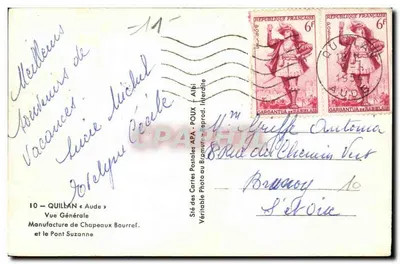 11
Meilleurs
souvenirs de
Vacances.
Lucie Michel
Evelyne Cécile
10 — QUILLAN « Aude »
Vue Générale
Manufacture de Chapeaux Bourrel.
et le Pont Suzanne
Sté des Cartes Postales APA - POUX - Albi
Véritable Photo au Bromure - Reprod. Interdite
RÉPUBLIQUE FRANÇAISE
6F
GARGANTUA DE RABELAIS
RÉPUBLIQUE FRANÇAISE
6F
GARGANTUA DE RABELAIS
AUDE
Antonia
8 Rue du Chemin Vert
Brunoy
S et Oise